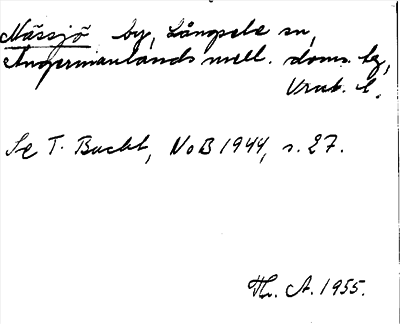 Nässjö by, Långsele sn,
Ångermanlands mell. doms. bg,
Vrnl. l.
Se T. Bucht, NoB 1944, s. 27.
Th. A. 1955.